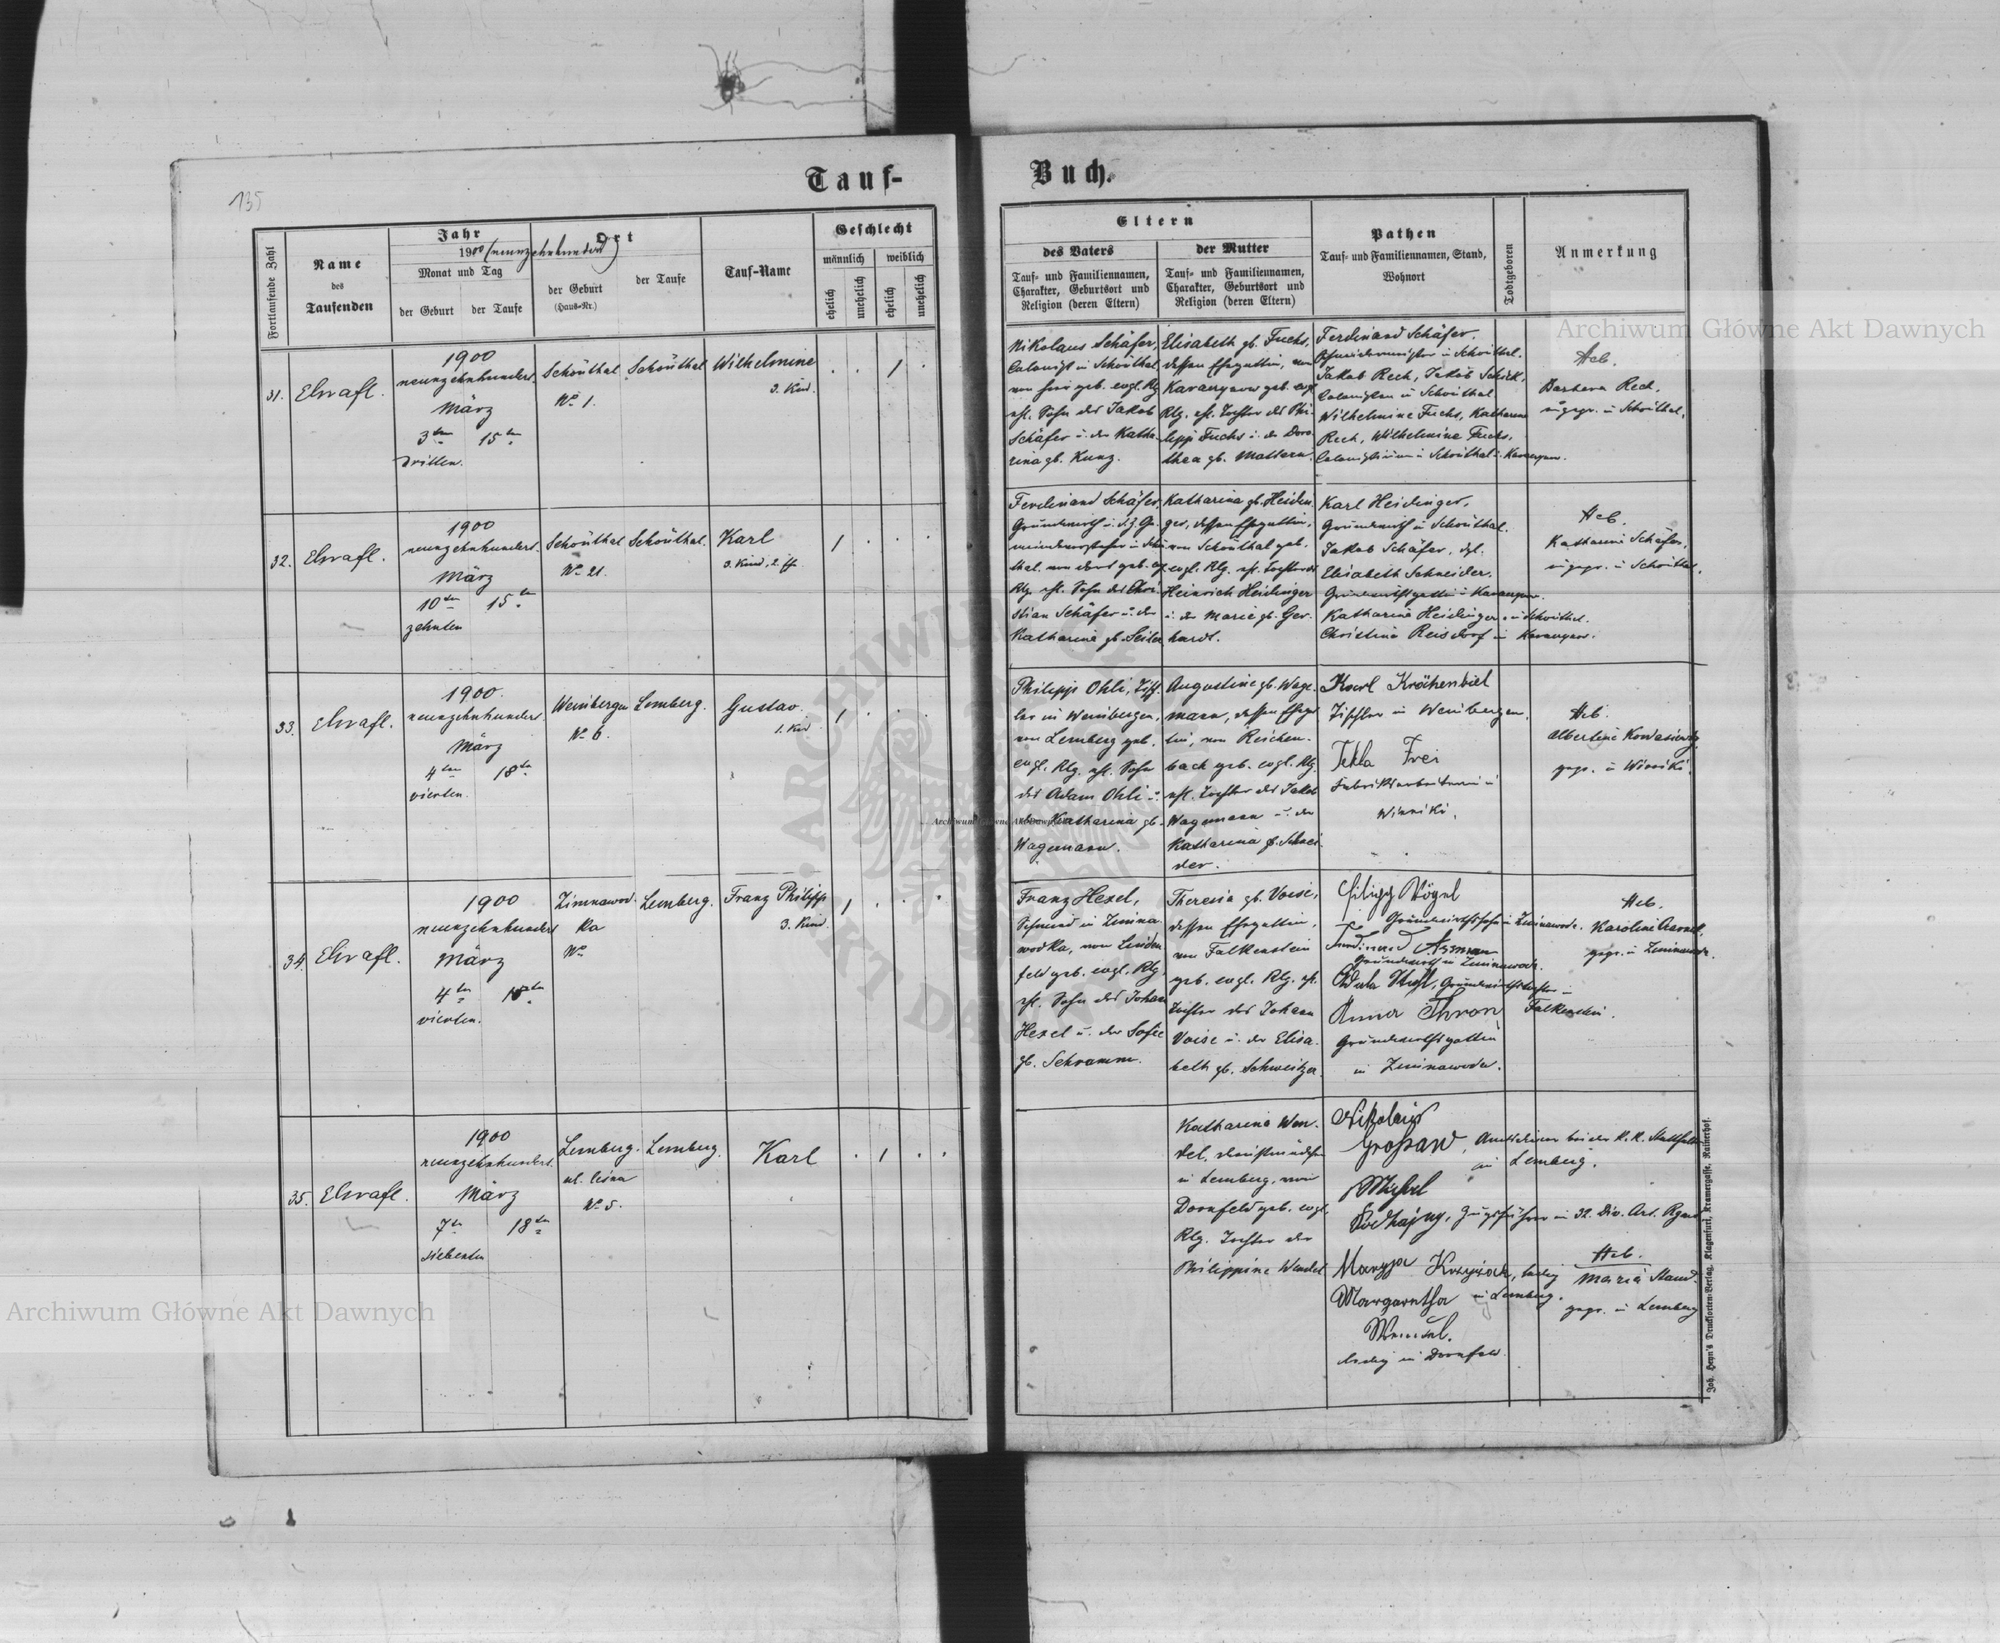 135
Tauf-
Buch.
Fortlaufende Zahl
Name
des
Taufenden
Jahr
1900 (neunzehnhundert)
Monat und Tag
der Geburt
der Taufe
Ort
der Geburt
(Haus-Nr.)
der Taufe
Tauf-Name
Geschlecht
männlich
weiblich
ehelich
unehelich
ehelich
unehelich
Eltern
des Vaters
Tauf- und Familiennamen,
Charakter, Geburtsort und
Religion (deren Eltern)
der Mutter
Tauf- und Familiennamen,
Charakter, Geburtsort und
Religion (deren Eltern)
Pathen
Tauf- und Familiennamen, Stand,
Wohnort
Todtgeboren
Anmerkung
31.
1900
neunzehnhundert
März
3ten
15ten
dritten.
Schönthal
No 1.
Schönthal
Wilhelmine
3. Kind.
1
Nikolaus Schäfer,
Colonist in Schönthal
von hier geb. evgl. Rlg.
ehl. Sohn des Jakob
Schäfer u. der Katha-
rina gb. Kunz.
Elisabeth gb. Fuchs,
dessen Ehegattin, von
geb. evgl.
Rlg. ehl. Tochter des Phi-
lipp Fuchs u. der Doro-
thea gb. Mattern.
Ferdinand Schäfer,
in Schönthal.
Jakob Rech, Jakob Schick,
Colonisten in Schönthal
Wilhelmine Fuchs, Katharina
Rech, Wilhelmine Fuchs,
in Schönthal u.
Heb.
Barbara Rech,
in Schönthal.
32.
1900
neunzehnhundert.
März
10ten
15ten
zehnten
Schönthal
No 21.
Schönthal.
Karl
3. Kind, 2.
1
Ferdinand Schäfer,
Grundwirth u. d. z. Ge-
meindevorsteher in Schön-
thal von dort geb. evgl.
Rlg. ehl. Sohn des Chri-
stian Schäfer u. der
Katharina gb. Seiler
Katharina gb. Heidin-
ger, dessen Ehegattin,
von Schönthal geb.
evgl. Rlg. ehl. Tochter des
Heinrich Heidinger
u. der Marie gb. Ger-
hardt.
Karl Heidinger,
Grundwirth in Schönthal.
Jakob Schäfer, dgl.
Elisabeth Schneider,
Grundwirthsgattin in
Katharina Heidinger in Schönthal.
Christina Reisdorf in
Heb.
Katharina Schäfer,
in Schönthal.
33.
1900.
neunzehnhundert.
März
4ten
18ten
vierten.
Weinbergen
No 6.
Lemberg.
Gustav.
1. Kind
1
Philipp Ohli, Tisch-
ler in Weinbergen,
von Lemberg geb.
evgl. Rlg. ehl. Sohn
des Adam Ohli u.
der Katharina gb.
Wagemann.
Augustine gb. Wage-
mann, dessen Ehegat-
tin, von Reichen-
bach geb. evgl. Rlg.
ehl. Tochter des Jakob
Wagemann u. der
Katharina gb. Schnei-
der.
Karl Krähenbiel
Tischler in Weinbergen.
Tekla Frei
Fabriksarbeiterin in
Winniki.
Heb.
Albertine
gepr. in Winniki.
34.
1900
neunzehnhundert
März
4ten
18ten
vierten.
Zimnawod-
ka
No
Lemberg.
Franz Philipp
3. Kind.
1
Franz Hexel,
Schmied in Zimna-
wodka, von Linden-
feld geb. evgl. Rlg.
ehl. Sohn des Johann
Hexel u. der Sofie
gb. Schramm.
Theresia gb. Voise,
dessen Ehegattin,
von Falkenstein
geb. evgl. Rlg. ehl.
Tochter des Johann
Voise u. der Elisa-
beth gb. Schweitzer.
Filipp Vögel
Grundwirthssohn in Zimnawoda.
Ferdinand Asman
Grundwirth in Zimnawoda.
Grundwirthstochter in
Falkenstein.
Anna Thron
Grundwirthsgattin
in Zimnawoda.
Heb.
Karoline
gepr. in Zimnawoda.
35.
1900
neunzehnhundert.
März
7ten
18ten
siebenten
Lemberg.
ul. leśna
No 5.
Lemberg.
Karl
1
Katharina Wen-
del, Dienstmädchen
in Lemberg, von
Dornfeld geb. evgl.
Rlg. Tochter der
Philippine Wendel
Nikolaus
Amtsdiener bei der K. K. Statthalt.
in Lemberg.
Michael
Zugsführer in 32. Div. Art. Rgmt.
Maryja
ledig
in Lemberg.
Margaretha
Wendel.
ledig in Dornfeld.
Heb.
Maria
gepr. in Lemberg
Joh. Heyn's Drucksorten-Verlag, Klagenfurt, Kramergasse, Rainerhof.
Archiwum Główne Akt Dawnych
Archiwum Główne Akt Dawnych
Archiwum Główne Akt Dawnych